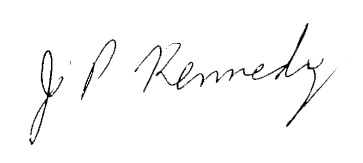 J. P. Kennedy